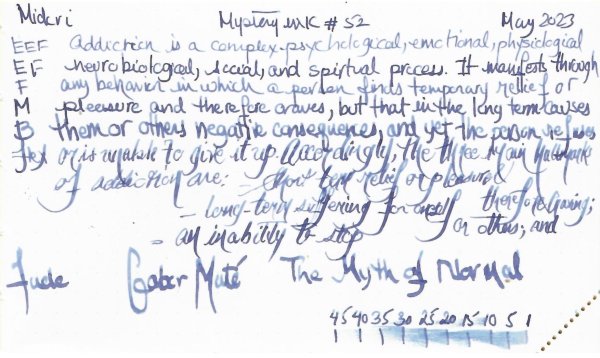 Midori Mystery ink #52 May 2023
EEF Addiction is a complex psychological, emotional, physiological
EF neurobiological, social, and spiritual process. It manifests through
F any behavior in which a person finds temporary relief or
M pleasure and therefore craves, but that in the long term causes
B them or others negative consequences, and yet the person refuses
Flex or is unable to give it up. Accordingly, the three main hallmarks
of addiction are: - short term relief or pleasure and
therefore craving;
- long-term suffering for oneself
or others; and
- an inability to stop
Fude Gabor Maté The Myth of Normal
45 40 35 30 25 20 15 10 5 1